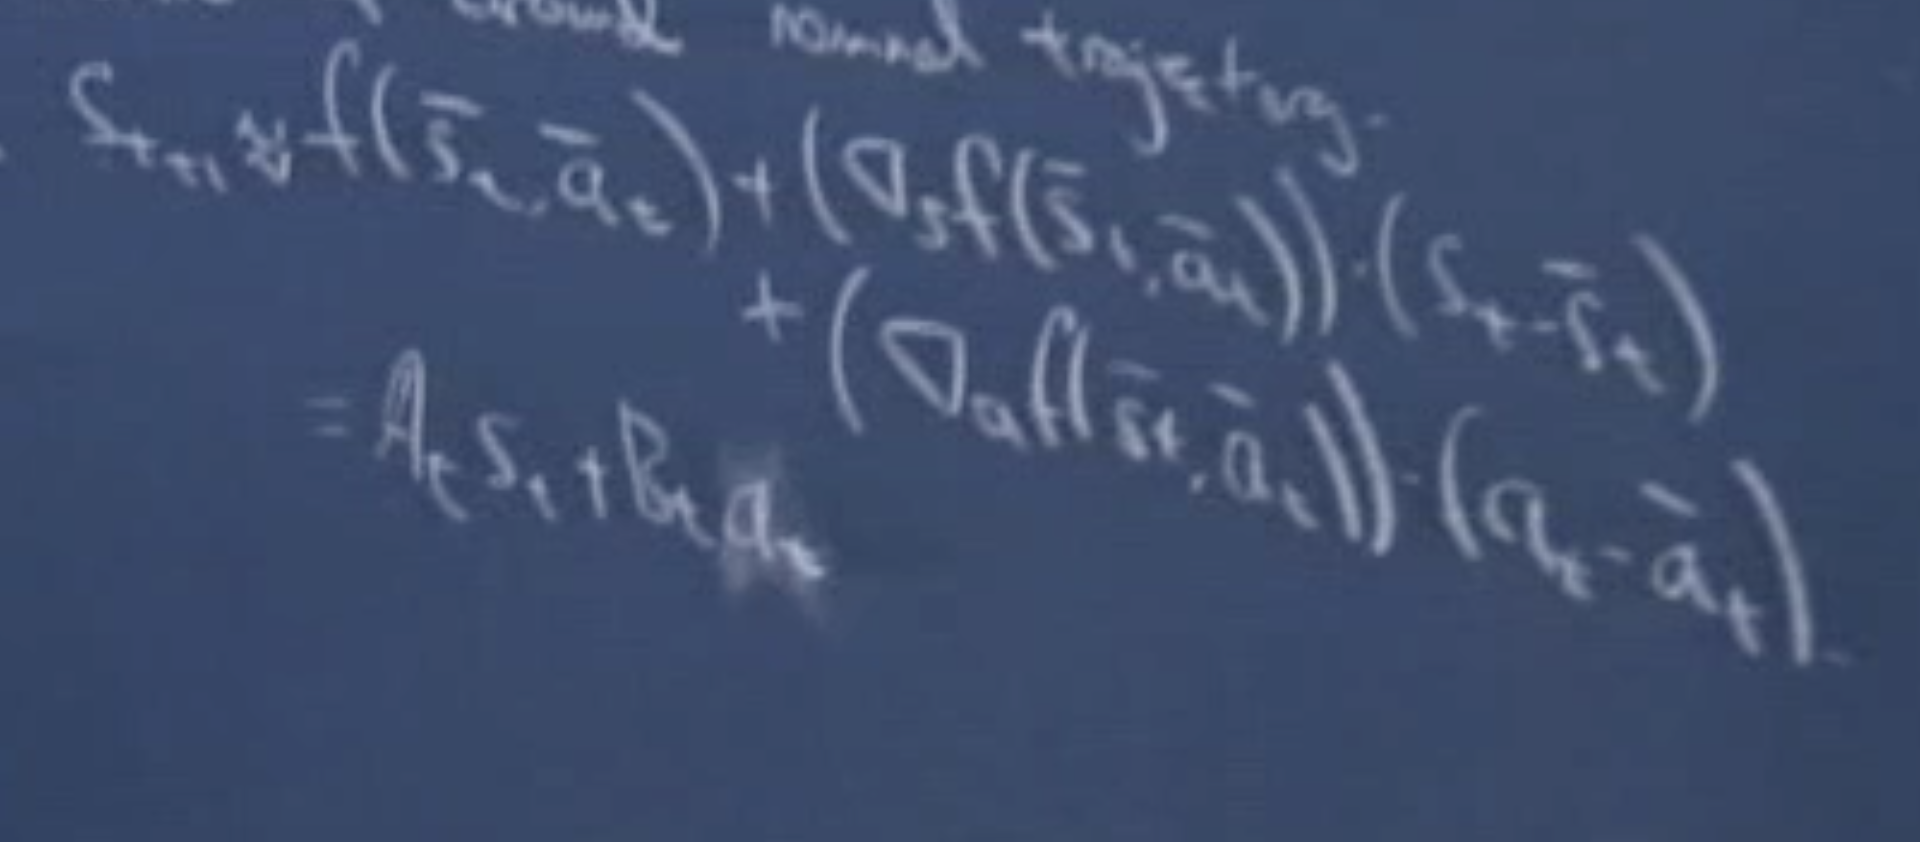 around nominal trajectory.
S_{t+1} ≈ f(s̄_t, ā_t) + (∇_s f(s̄_t, ā_t)) · (S_t - s̄_t)
+ (∇_a f(s̄_t, ā_t)) · (a_t - ā_t).
= A_t S_t + B_t a_t